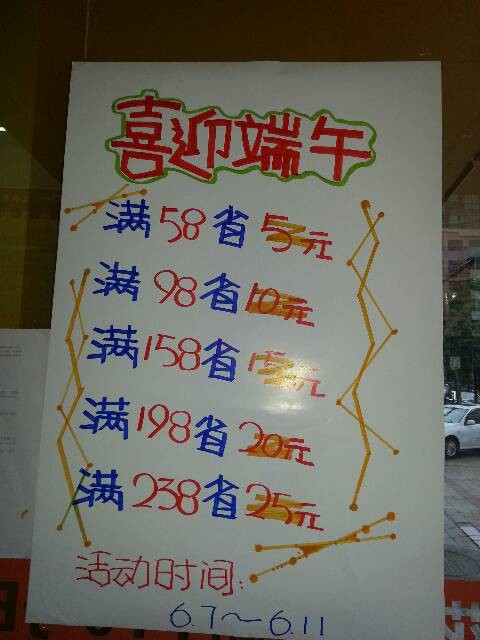 喜迎端午
满58省5元
满98省10元
满158省15元
满198省20元
满238省25元
活动时间:
6.7～6.11